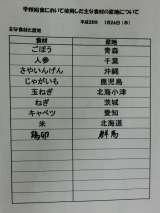 学校給食において使用した主な食材の産地について
平成28年 1月26日(木)
主な食材と産地
食材 産地
ごぼう 青森
人参 千葉
さやいんげん 沖縄
じゃがいも 鹿児島
玉ねぎ 北海小津
ねぎ 茨城
キャベツ 愛知
米 北海道
鶏卵 群馬